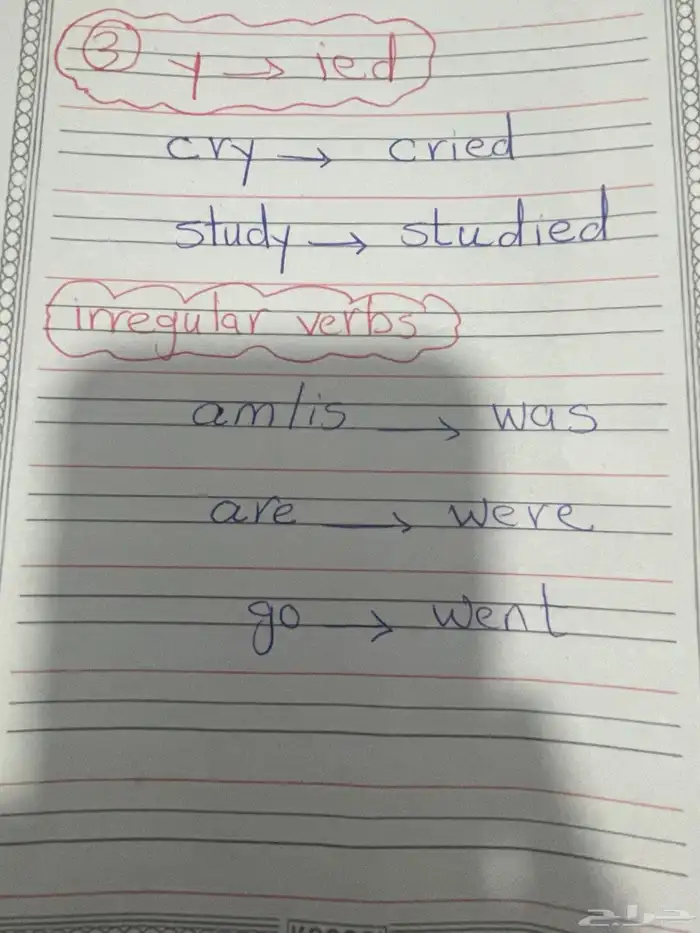 ③ y → ied
cry → cried
study → studied
irregular verbs
am/is → was
are → were
go → went
حراج